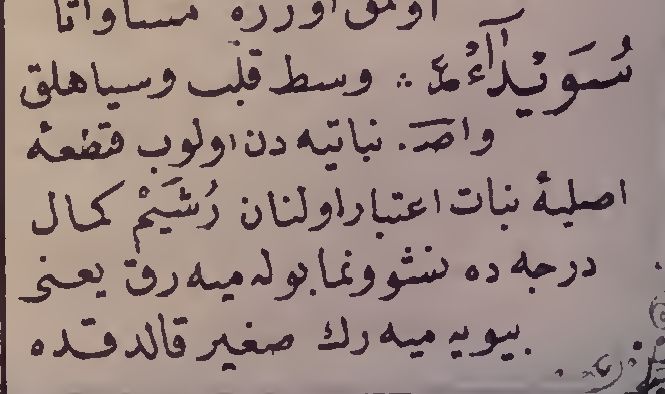 اولمق اوزره مساواتا
سُوَيْدَآءُ ؏ ؞ وسط قلب وسياهلق
واصـ. نباتيه دن اولوب قطعهٔ
اصليهٔ نبات اعتبار اولنان رُشَيْمْ كمال
درجه ده نشو ونما بوله ميه رق يعنى
بيويه ميه رك صغير قالدقده